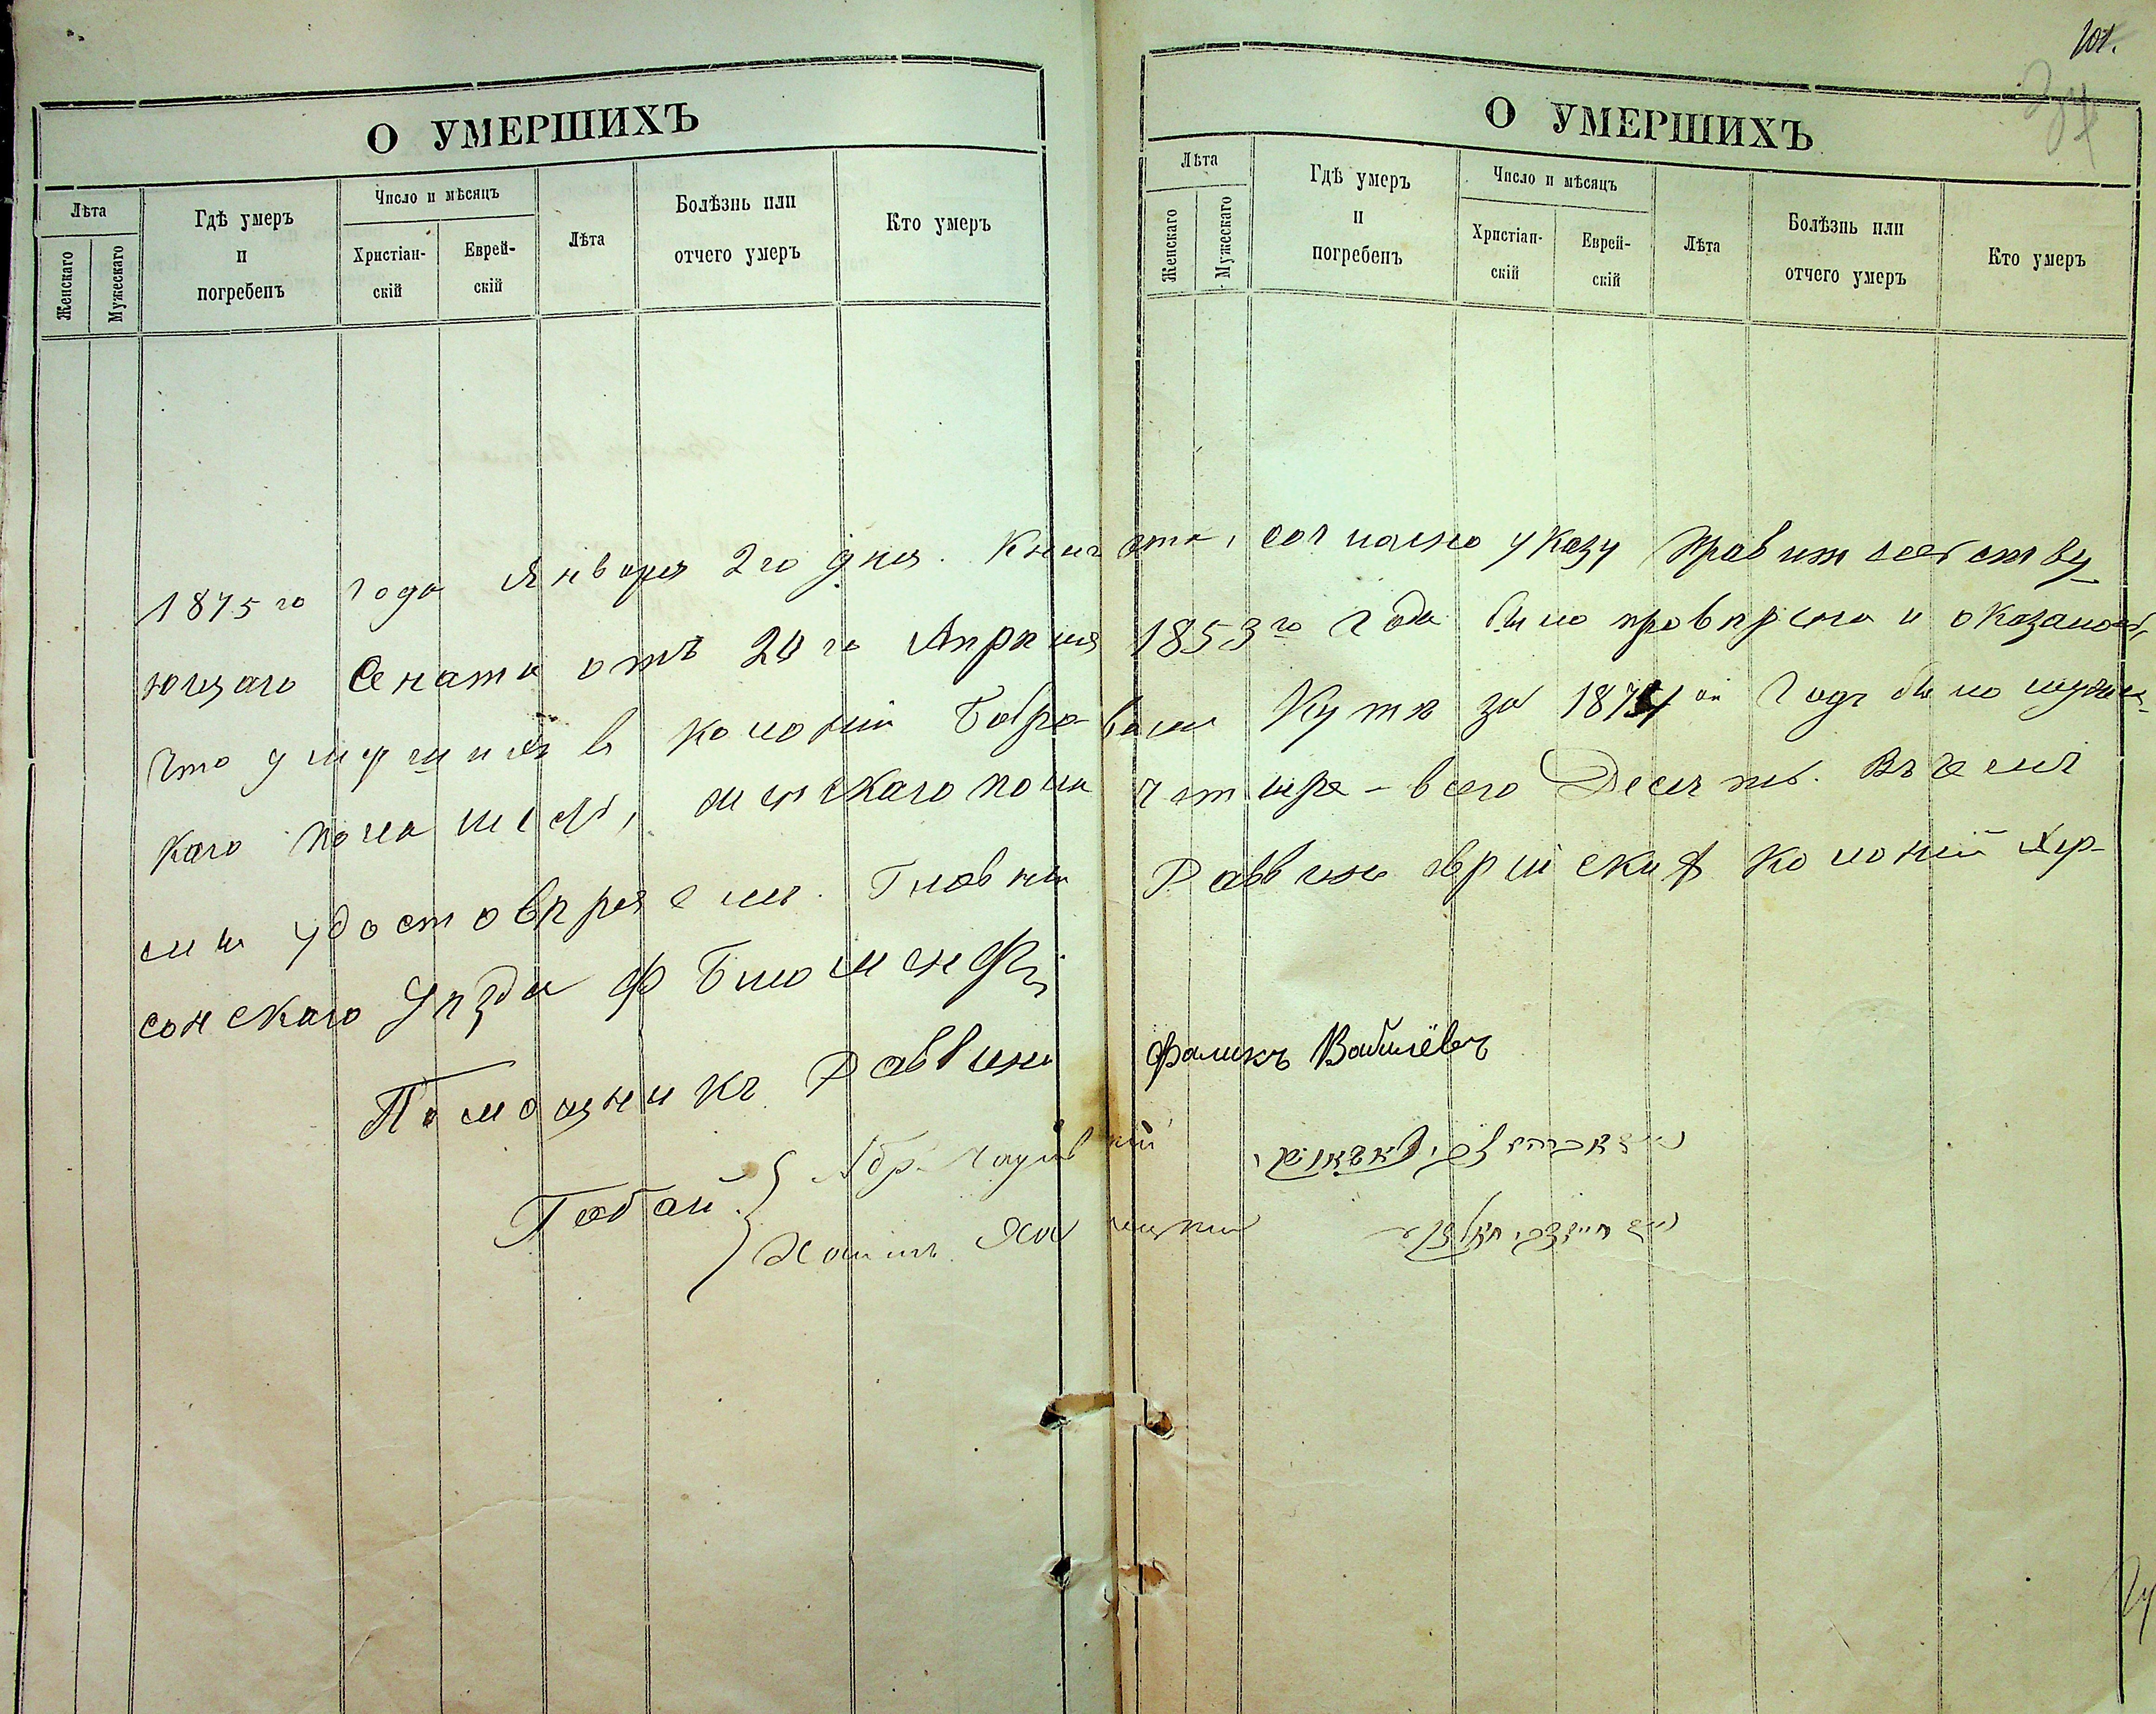 101.
34
О УМЕРШИХЪ
Лѣта
Женскаго
Мужескаго
Гдѣ умеръ
и
погребенъ
Число и мѣсяцъ
Христіан-
скій
Еврей-
скій
Лѣта
Болѣзнь или
отчего умеръ
Кто умеръ
О УМЕРШИХЪ
Лѣта
Женскаго
Мужескаго
Гдѣ умеръ
и
погребенъ
Число и мѣсяцъ
Христіан-
скій
Еврей-
скій
Лѣта
Болѣзнь или
отчего умеръ
Кто умеръ
1875го года Января 2го дня. Книга эта, согласно указу Правительству
ющаго Сената отъ 20го Апрѣля 1853го года была провѣрена и оказалось,
что умершихъ в колоніи Бобровомъ Кутѣ за 1874ой годъ было мужес-
каго пола шесть, женскаго пола четыре - всего Десять. Въ чемъ
мы удостовѣряемъ. Главный Раввинъ еврейскихъ колоній Хер-
сонскаго Уѣзда Ф Блюменфе
Помощникъ Раввина Фаликъ Вавилёвъ
Габай
Хаимъ